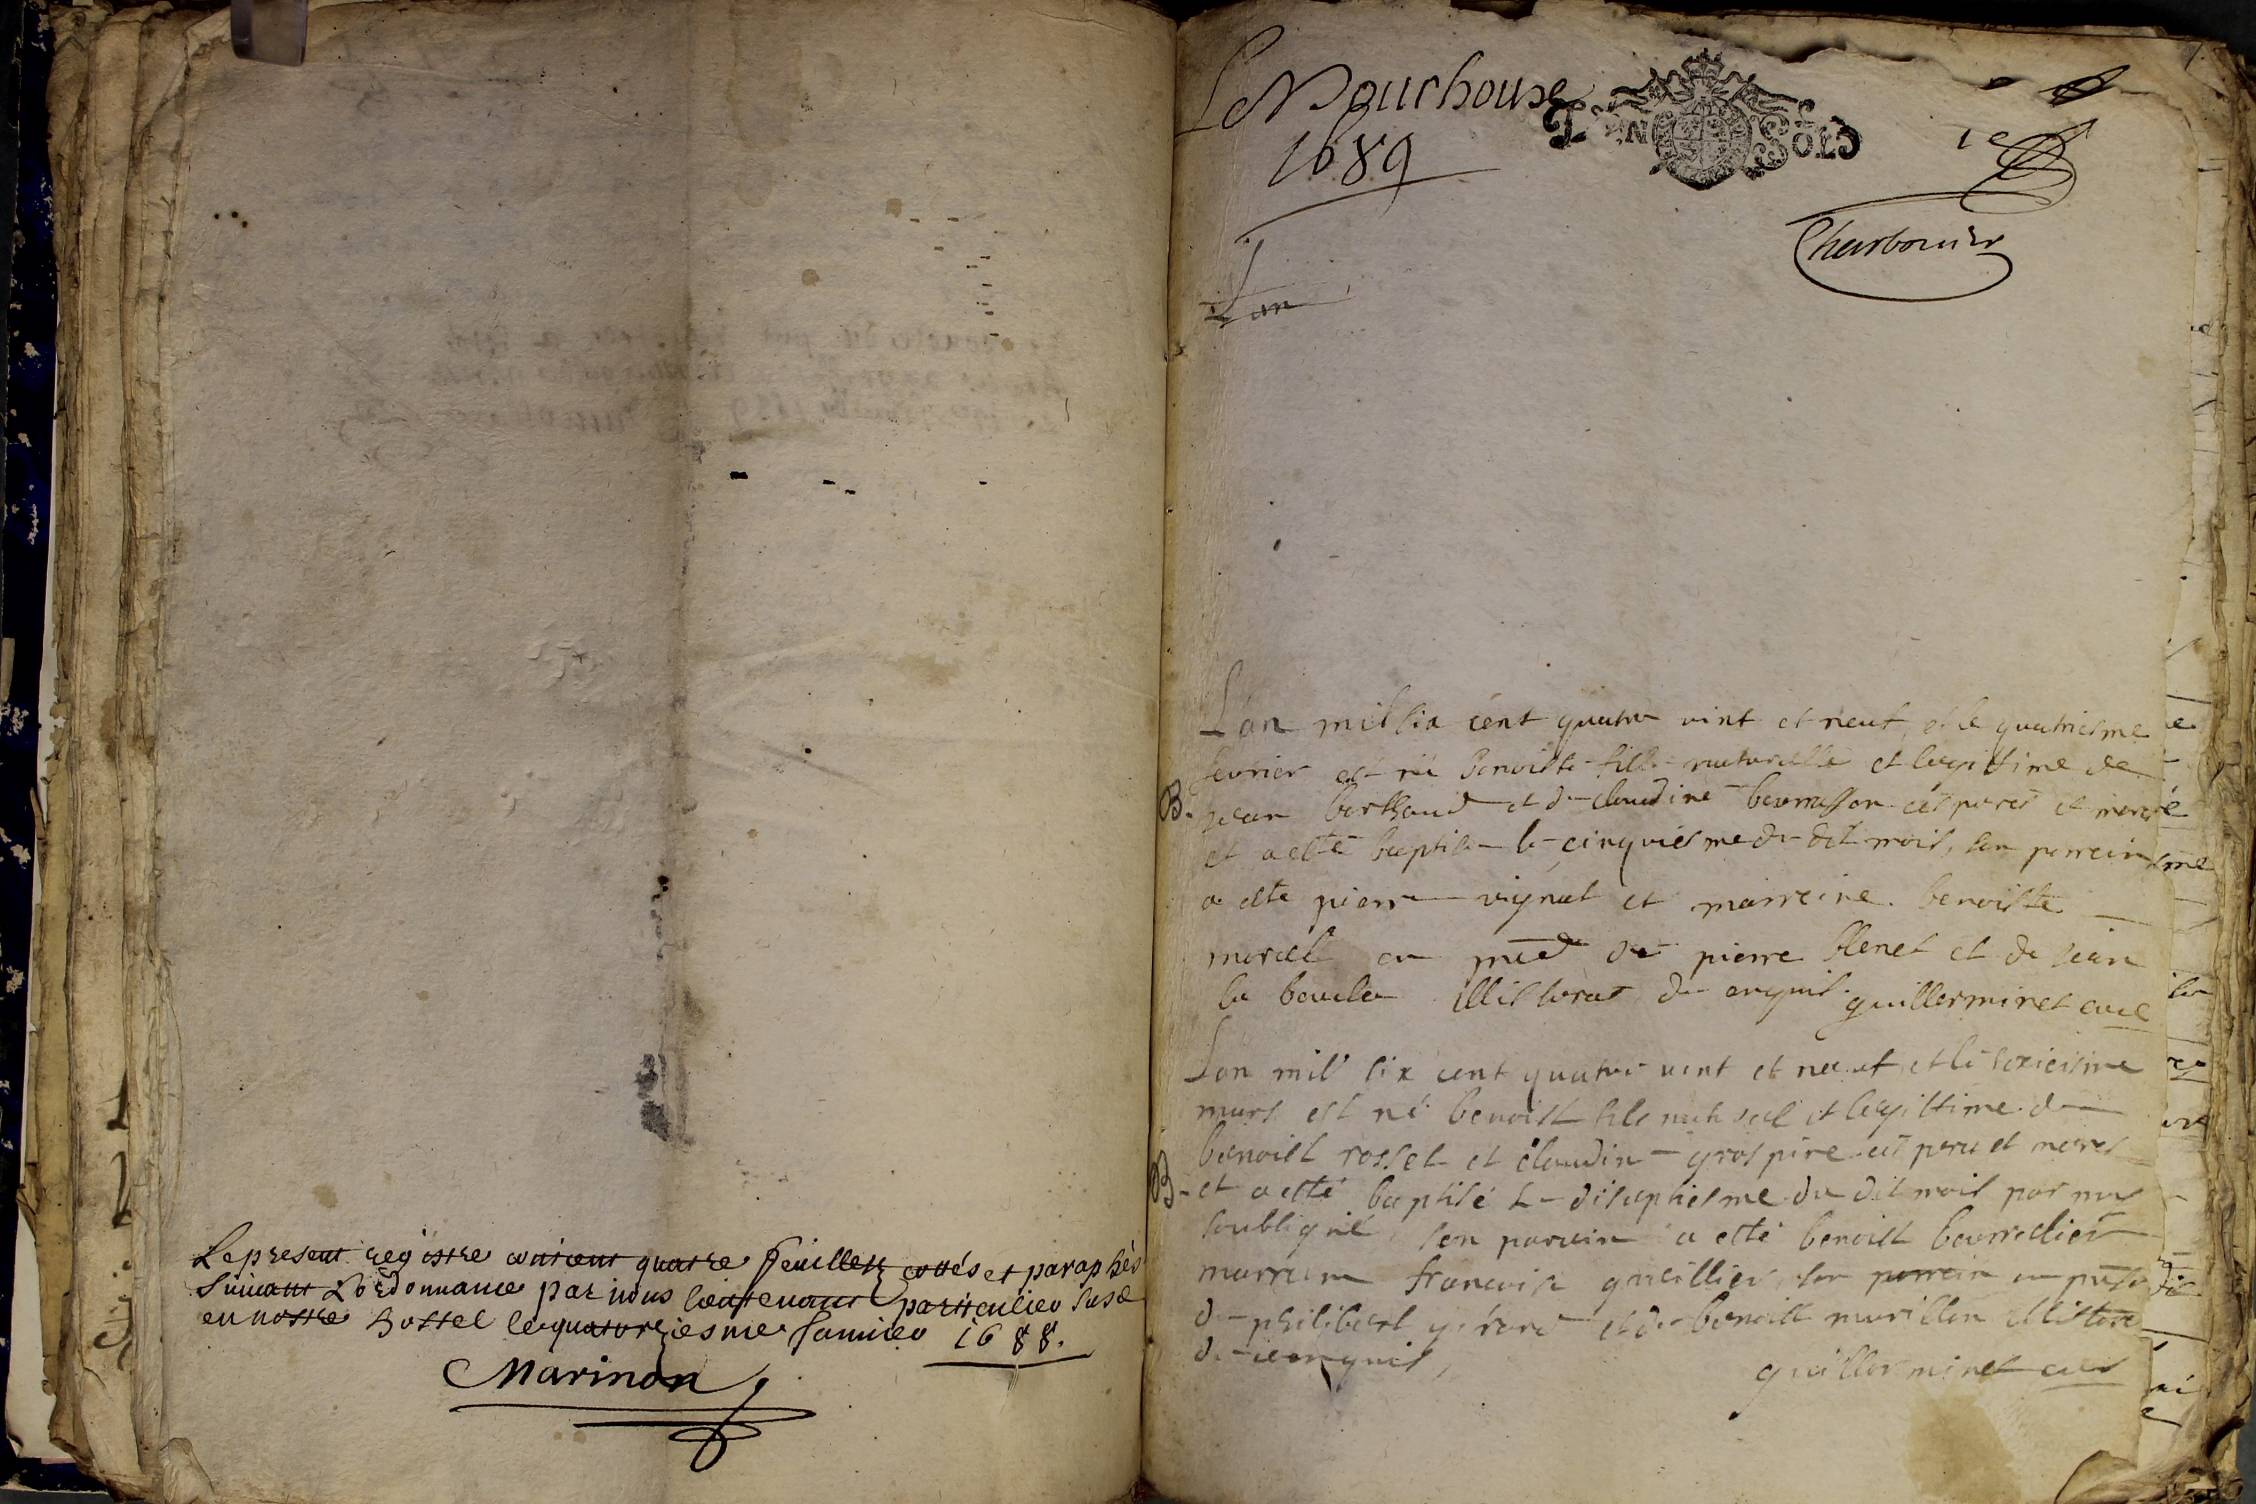 Le present registre contient quatre feuillets cottés et paraphés
suivant L'ordonnance par nous lieutenant particulier susd
en nostre hostel le quatorziesme Janvier 1688.
Marinon
Le Nourhouse
1689
Charbonier
L'an
L'an mil six cent quatre vint et neuf et le quatriesme
fevrier est né benoiste fille naturelle et legittime de
B. jean berthaud et de claudine bourrasson ces peres et meres
et a esté baptisé le cinquiesme du dit mois, son parrein
a esté pierre vignat et marreine benoiste
morel en pnce de pierre blenet et de jean
la boucle illitterat de enquis guillerminet curé
L'an mil six cent quatre vint et neuf et le sezieisme
mars est né benoist fils naturel et legittime de
benoist rosset et claudine grospire ces peres et meres
B. et a esté baptisé le diseptiesme du dit mois par nous
soubsigné, son parrein a esté benoist
marreine francoise en
de philibert et de benoist
de enquis,
guillerminet curé